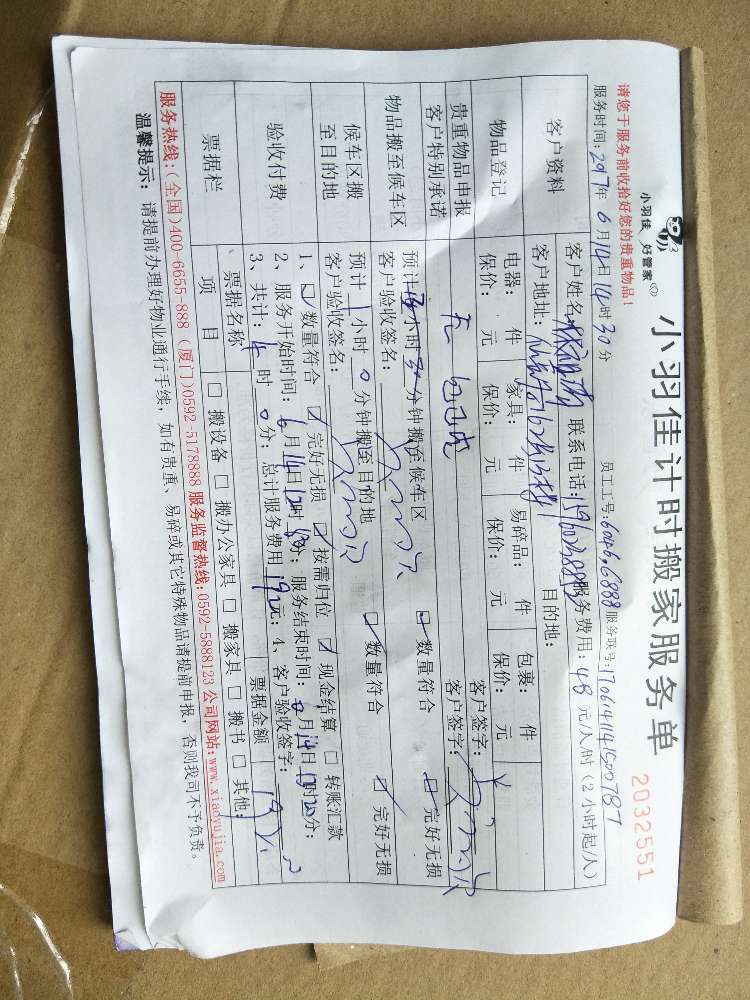 小羽佳 好管家
小羽佳计时搬家服务单
2032551
请您于服务前收拾好您的贵重物品!
员工号: 6046.6888 服务联号:
服务时间: 2017年 6月14日14时30分
客户资料
客户姓名: 联系电话: 服务费用: 48 元/人/时 (2小时起/人)
客户地址: 目的地:
物品登记
电器: 件 家具: 件 易碎品: 件 包裹: 件
保价: 元 保价: 元 保价: 元 保价: 元
贵重物品申报
无 客户签字:
客户特别承诺
客户签字:
物品搬至候车区
预计 小时 分钟搬至候车区 数量符合 完好无损
客户验收签名:
候车区搬至目的地
预计 1 小时 0 分钟搬至目的地 数量符合 完好无损
客户验收签名:
验收付费
1、 数量符合 完好无损 按需归位 现金结算 转账汇款
2、服务开始时间: 6月14日 时 分; 服务结束时间: 月14日 时 分;
3、共计: 4 时 0 分; 总计服务费用 192 元; 4、客户验收签字:
票据栏
票据名称 票据金额 192
项目 搬设备 搬办公家具 搬家具 搬书 其他:
服务热线:(全国)400-6655-888 (厦门)0592-5178888 服务监督热线:0592-5888123 公司网站:www.xiaoyujia.com
温馨提示: 请提前办理好物业通行手续, 如有贵重、易碎或其它特殊物品请提前申报, 否则我司不予负责。